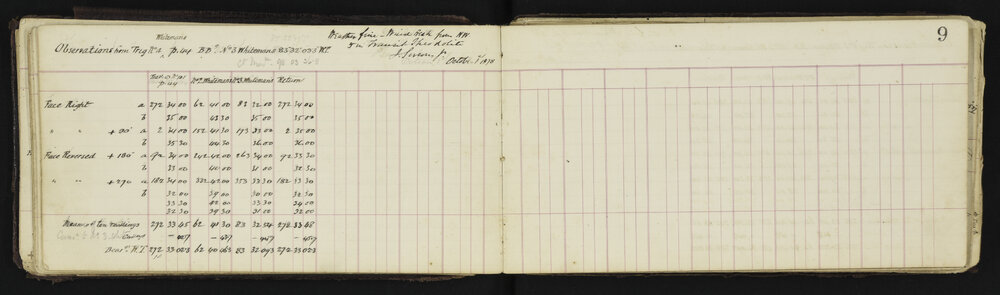 9
Whitemans
Observations from Trig No 4 p. 44 B.D. No 3 Whitemans 83 32 023 W.T.
Weather fine - Wind fresh from NW
5 in Transit Theodolite
October 1878
p. 44 No 2 Whitemans No 3 Whitemans Return
Face Right a 272 34 00 62 41 00 83 32 00 272 34 00
b 35 00 43 30 35 00 35 00
" " + 90° a 2 34 00 152 41 30 173 33 00 2 35 00
b 35 30 44 30 36 00 36 00
Face Reversed + 180° a 92 34 00 242 42 00 263 34 00 92 33 30
b 33 00 40 00 31 00 32 30
" " + 270 a 182 34 00 332 42 00 353 33 30 182 33 30
b 32 00 39 00 30 00 32 30
33 30 42 00 33 30 34 00
32 30 39 30 31 00 32 00
Means of ten readings 272 33 45 62 41 30 83 32 54 272 33 48
- 457 - 457 - 457 - 457
Bear. W.T. 272 33 023 62 40 063 83 32 093 272 33 023